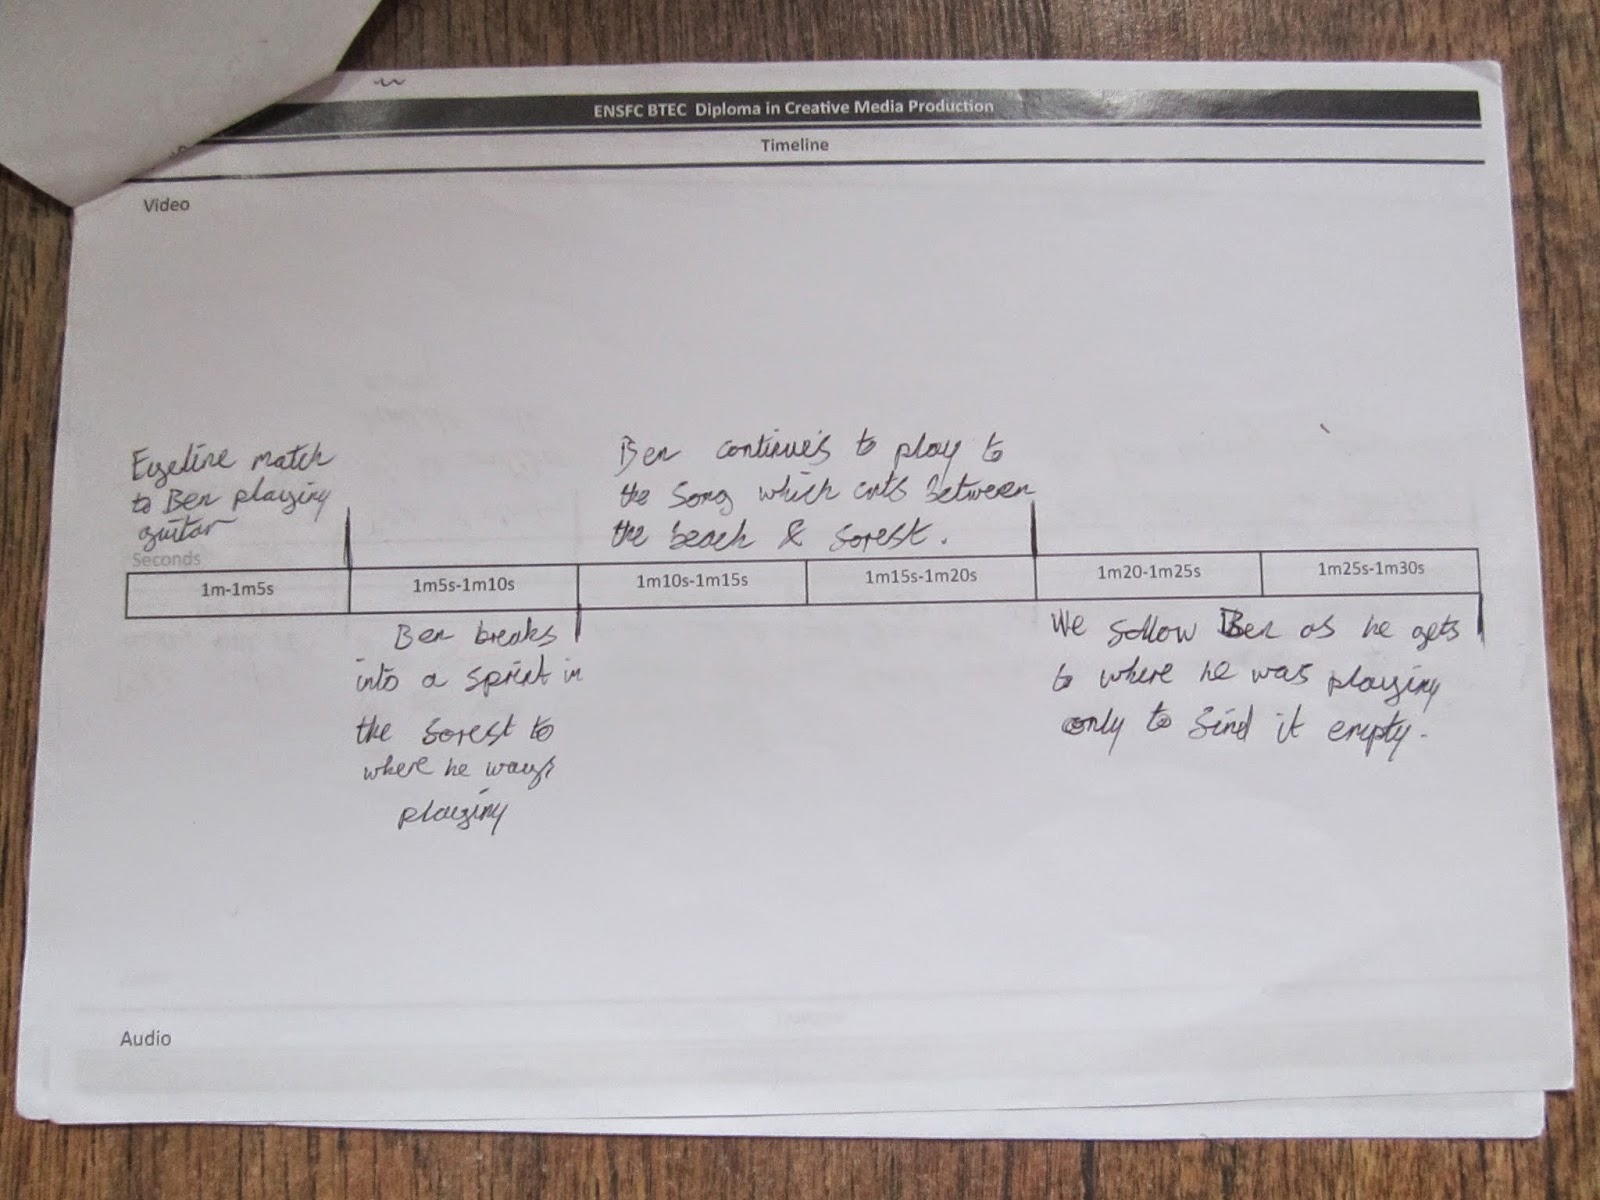 ENSFC BTEC Diploma in Creative Media Production
Timeline
Video
Eyeline match
to Ben playing
guitar
Ben continue's to play to
the song which cuts between
the beach & forest.
Seconds
1m-1m5s
1m5s-1m10s
1m10s-1m15s
1m15s-1m20s
1m20-1m25s
1m25s-1m30s
Ben breaks
into a sprint in
the forest to
where he
playing
We follow Ben as he gets
to where he was playing
only to find it empty.
Audio